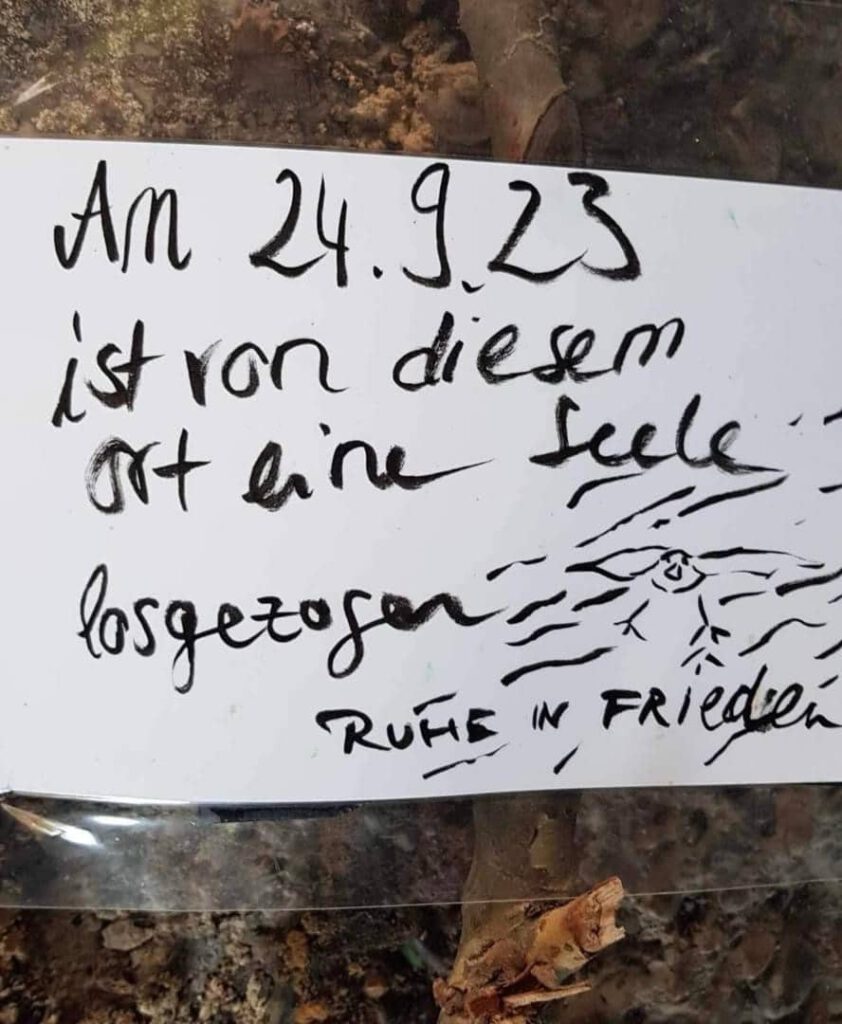 Am 24.9.23
ist von diesem
Ort eine Seele
losgezogen
RUHE IN FRieden